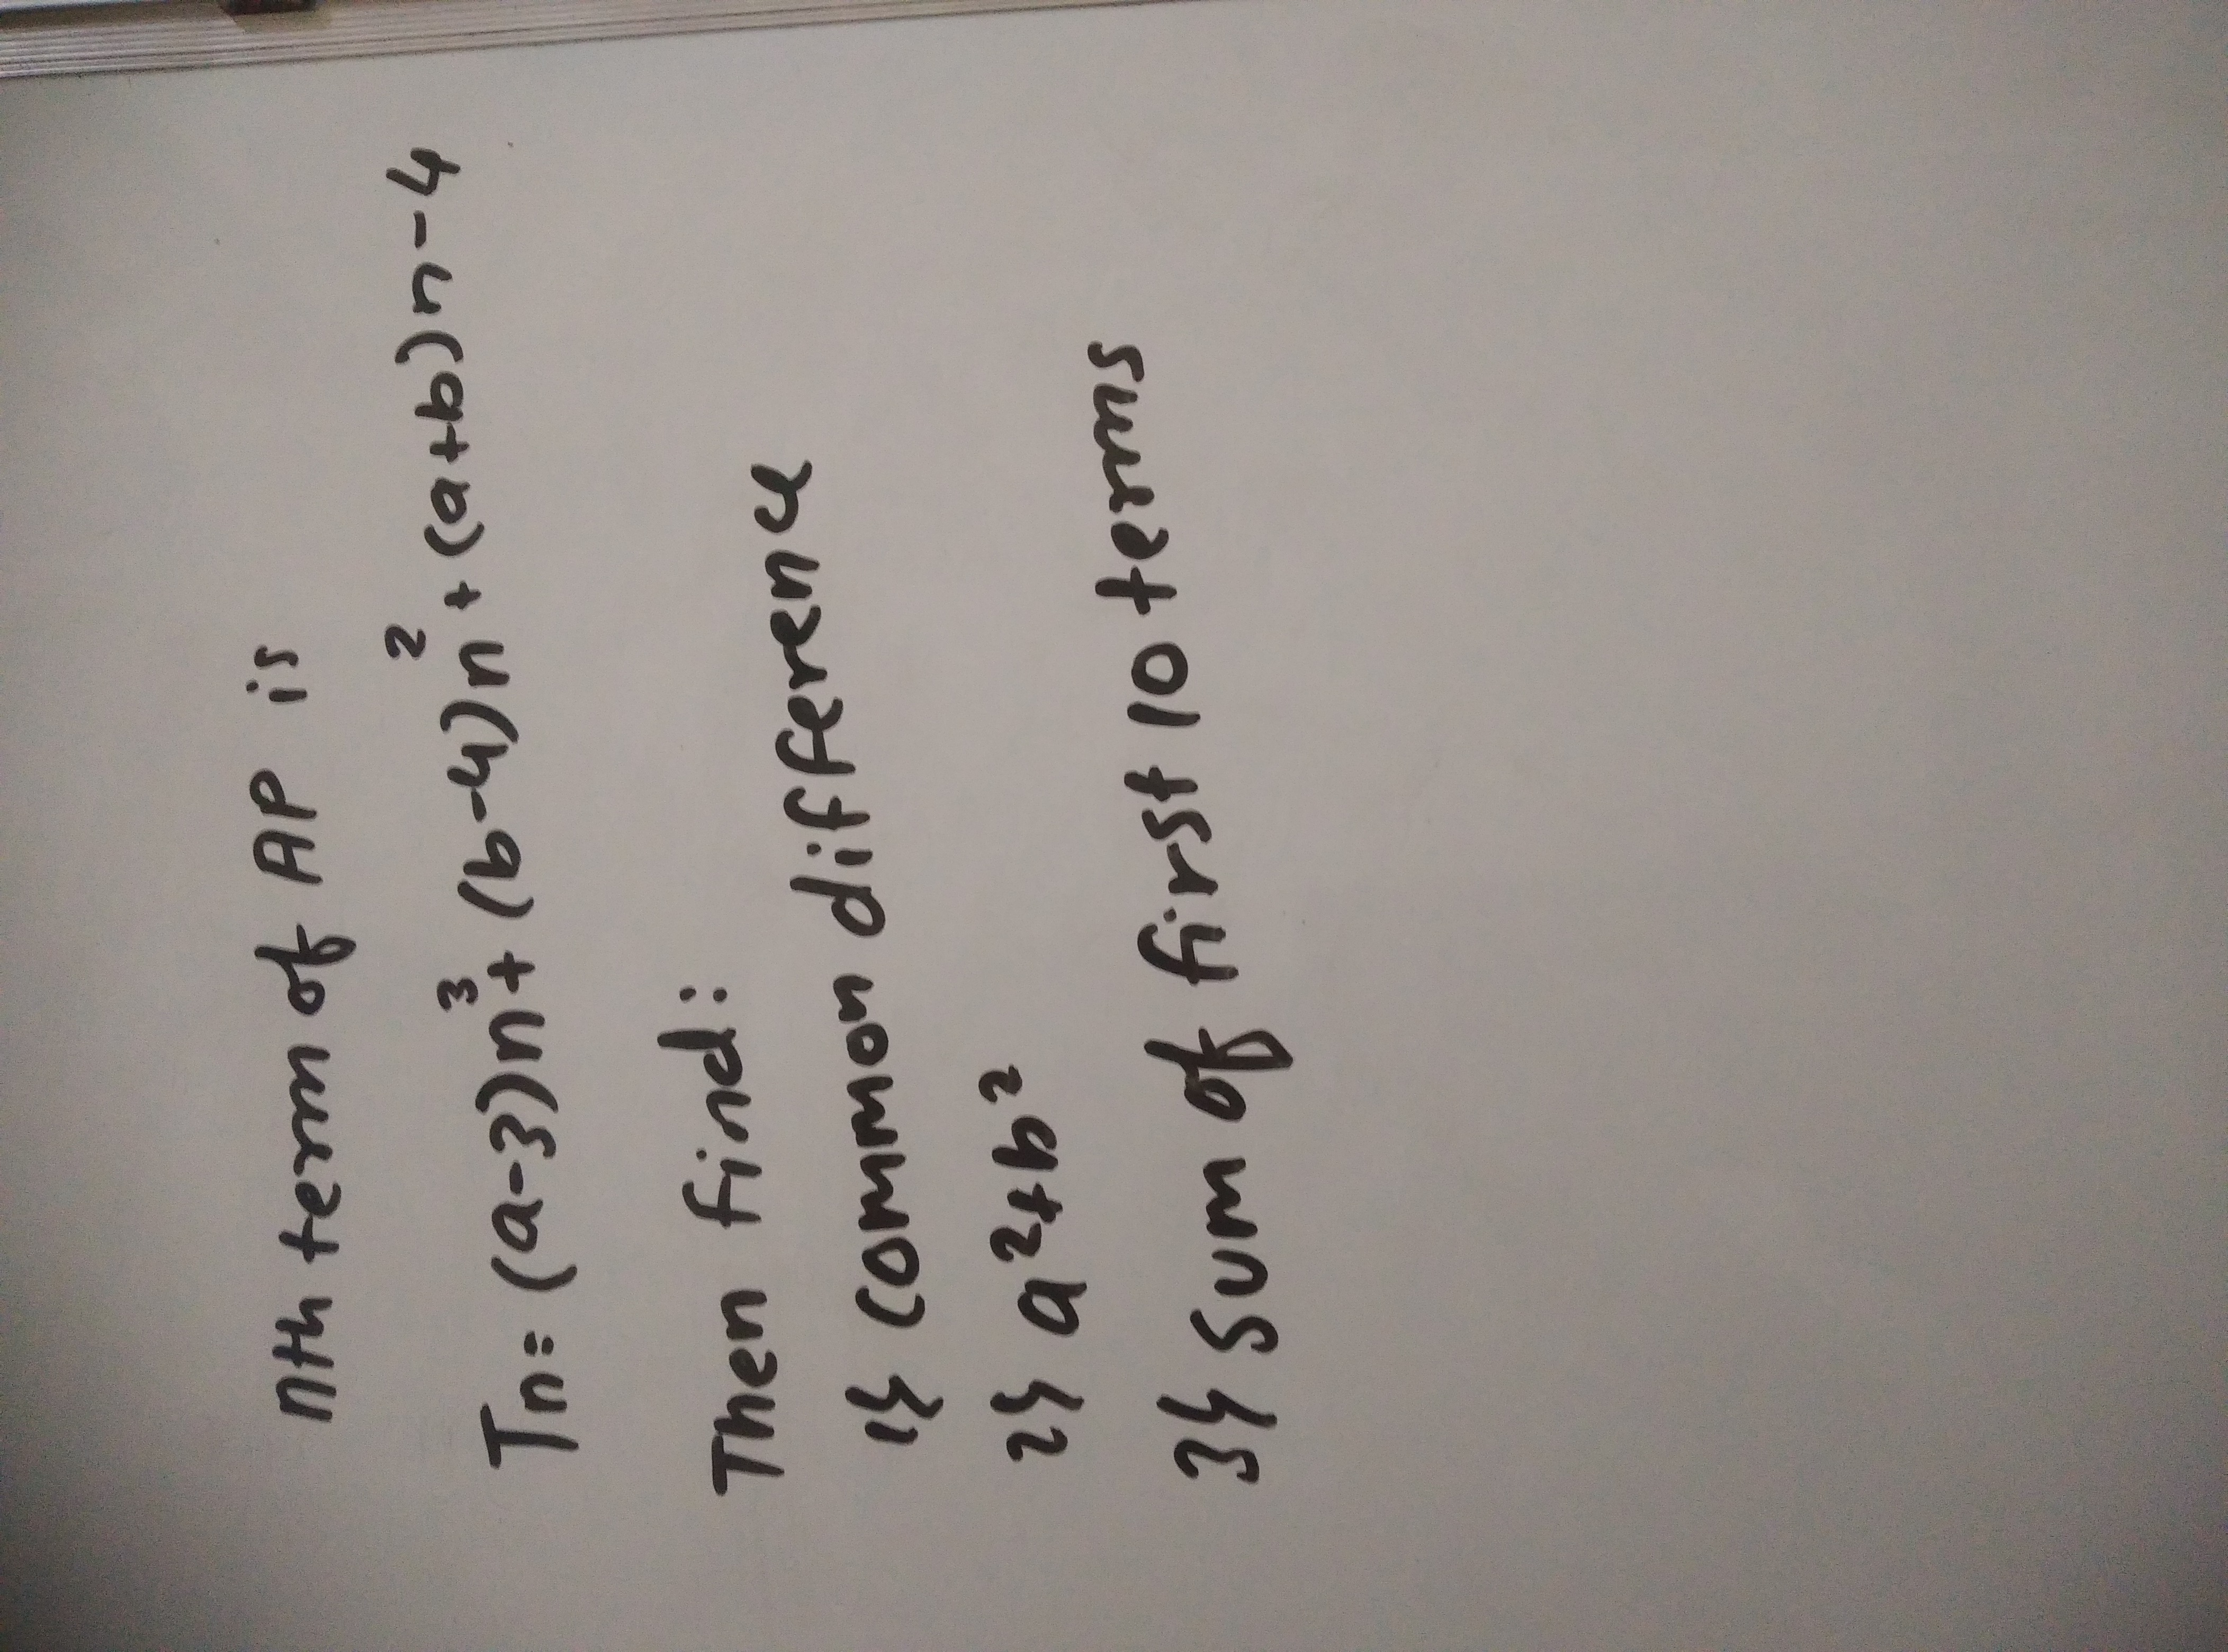 nth term of AP is
Tn = (a-3)n³ + (b-4)n² + (a+b)n - 4
Then find:
1} common difference
2} a² + b²
3} Sum of first 10 terms